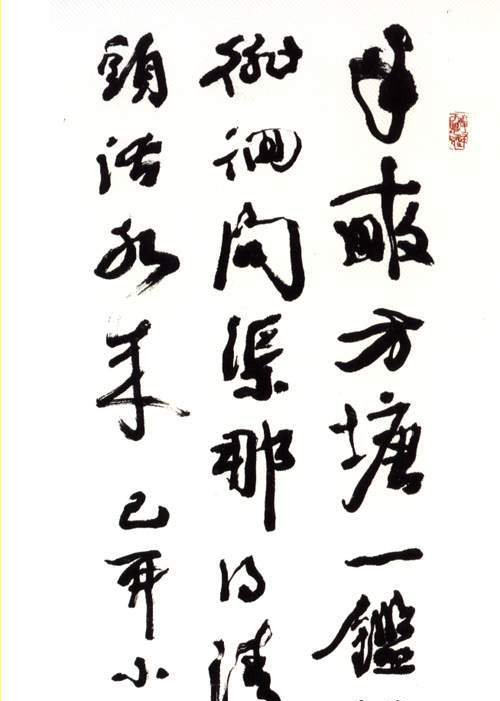 半畝方塘一鑑
徘徊問渠那得清
頭活水來 己小